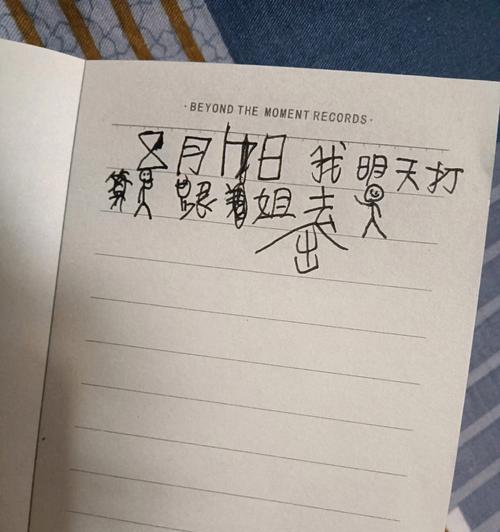 ·BEYOND THE MOMENT RECORDS·
8月日 我明天打
算 跟姐去
出